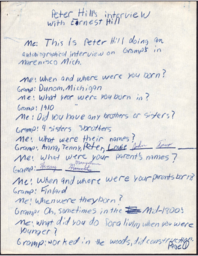 Peter Hill's interview
with Earnest Hill
Me: This Is Peter Hill doing an
interview on Gramps in
Marenisco Mich.
Me: When and where were you born?
Gramp: Michigan
Me: What year were you born in?
Gramp: 1910
Me: Did you have any brothers or sisters?
Gramp: 4 sisters 3 brothers
Me: What were their names?
Gramp:
Me: What were your parents' names?
Gramp:
Me: When and where were your parents born?
Gramp: Finland
Me: When were they born?
Gramp: Oh, sometimes in the Mid-1900s
Me: What did you do for a living when you were
younger?
Gramp: worked in the woods, did construction